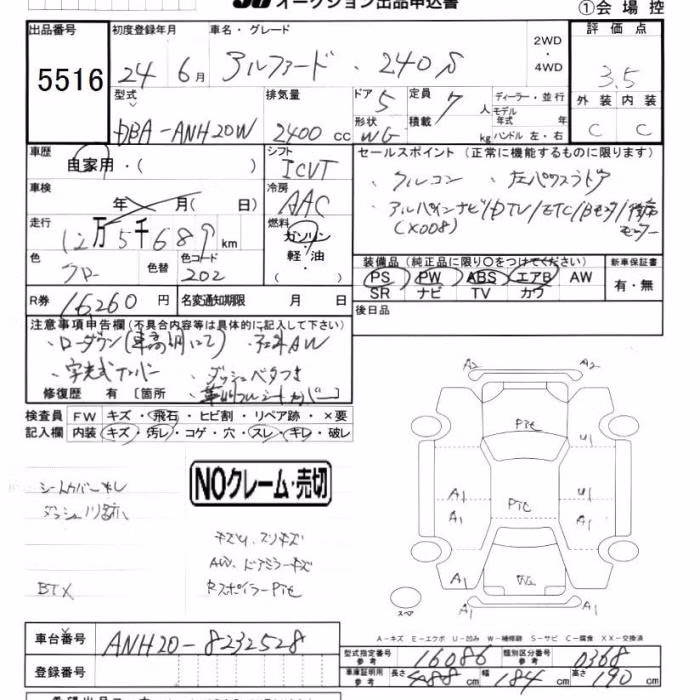 オークション出品申込書
①会場控
出品番号
5516
初度登録年月
24 6月
車名・グレード
アルファード・240S
2WD
4WD
評価点
3.5
外装 内装
C C
型式
DBA-ANH20W
排気量
2400 cc
ドア 5
形状 WG
定員 7 人
積載 kg
ディーラー・並行
モデル年式 年
ハンドル 左・右
車歴
自家用・( )
シフト
ICVT
車検
年 月( 日)
冷房
AAC
走行
12万5千689 km
燃料
ガソリン
軽・油
( )
色
色替
色コード
202
R券 16260 円
名変通知期限 月 日
セールスポイント (正常に機能するものに限ります)
・クルコン ・左パワスラドア
・アルパインナビ/DTV/ETC/Bモニタ/後席モニター
(X008)
装備品 (純正品に限り○をつけてください)
PS PW ABS エアB AW
SR ナビ TV カワ
新車保証書
有・無
後日品
注意事項申告欄(不具合内容等は具体的に記入して下さい)
・ローダウン(車高調にて) ・社外AW
・字光式ナンバー ・ダッシュベタつき
修復歴 有 [箇所 ・革調フルシートカバー]
検査員 FW キズ・飛石・ヒビ割・リペア跡・×要
記入欄 内装 キズ・汚レ・コゲ・穴・スレ・キレ・破レ
NOクレーム・売切
シートカバーキレ
BTX
AW、ドアミラーキズ
RスポイラーPTE
A2 A2
PTE
U1
A1 PTE U1
A1 A1
A1 W2 A1
A1
スペア
A-キズ E-エクボ U-凹み W-補修跡 S-サビ C-腐食 XX-交換済
車台番号 ANH20-8232528
登録番号
型式指定番号 参考 16086
類別区分番号 参考 0368
車庫証明用 参考 長さ 488 cm 幅 184 cm 高さ 190 cm